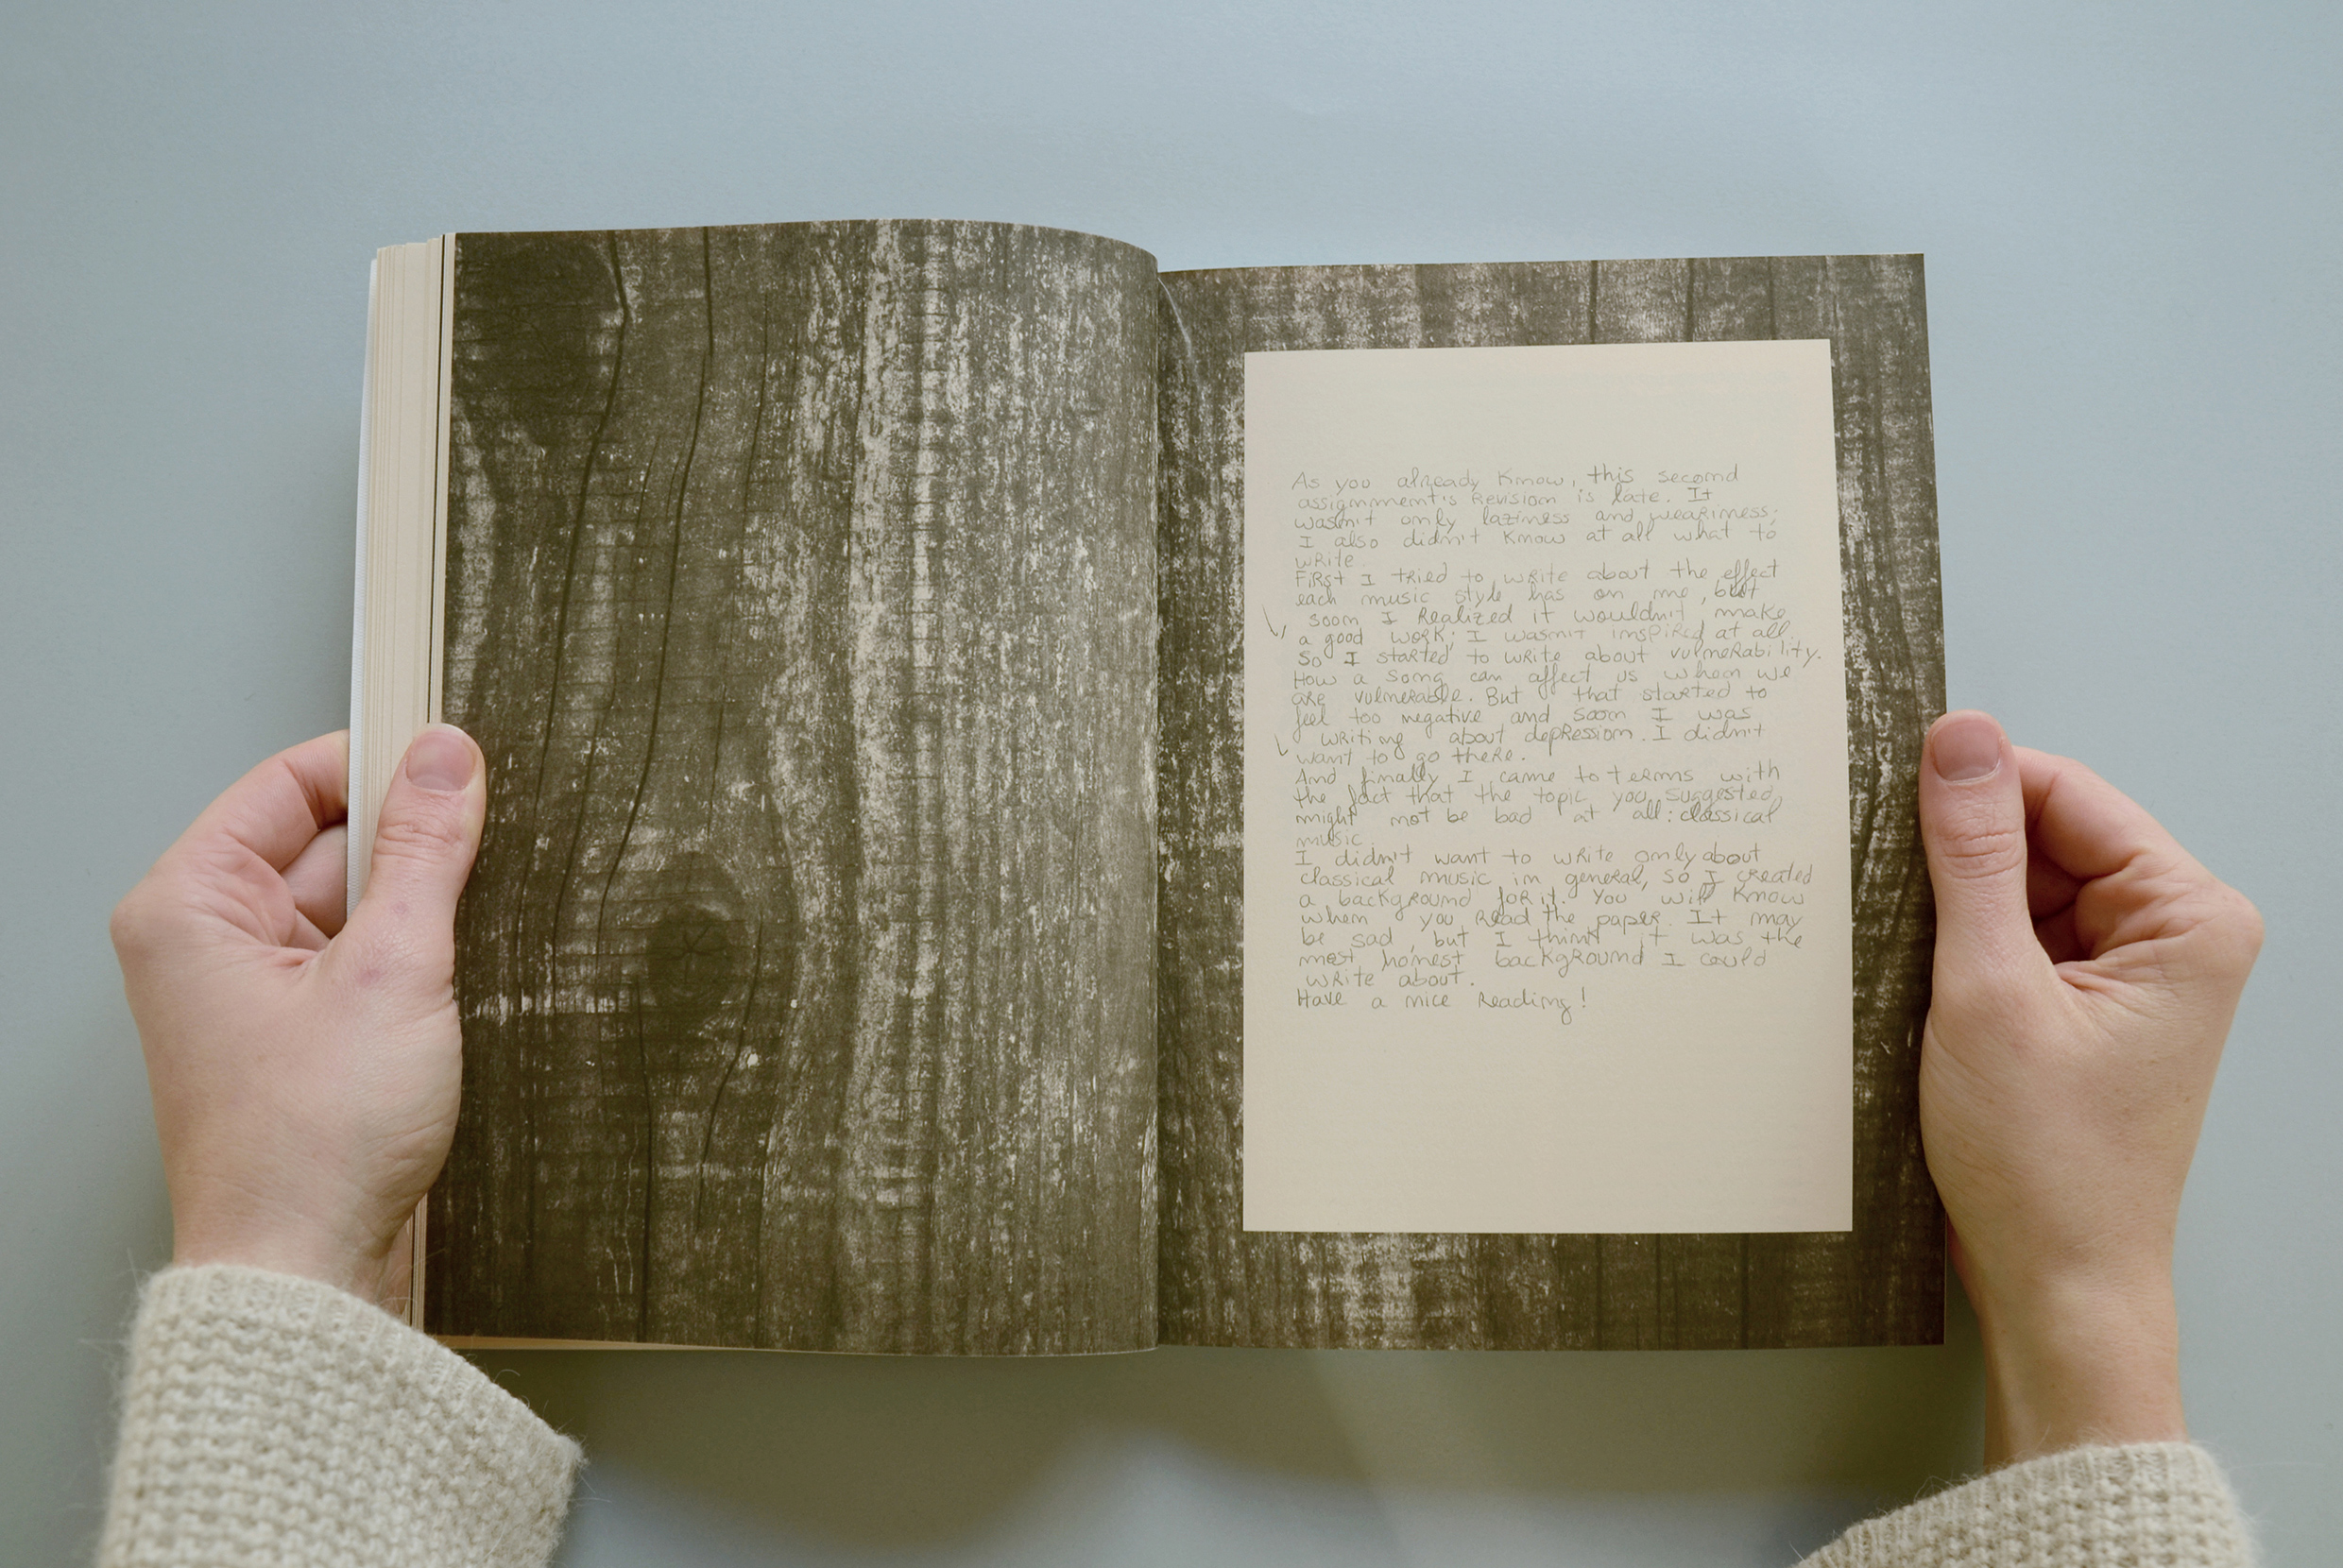 As you already know, this second
assignment's Revision is late. It
wasn't only laziness and weariness;
I also didn't know at all what to
write.
First I tried to write about the effect
each music style has on me, but
soon I Realized it wouldn't make
a good work; I wasn't inspired at all.
So I started to write about vulnerability.
How a song can affect us when we
are vulnerable. But that started to
feel too negative and soon I was
writing about depression. I didn't
want to go there.
And finally I came to terms with
the fact that the topic you suggested
might not be bad at all: classical
music.
I didn't want to write only about
classical music in general, so I created
a background for it. You will know
when you read the paper. It may
be sad, but I think it was the
most honest background I could
write about.
Have a nice Reading!